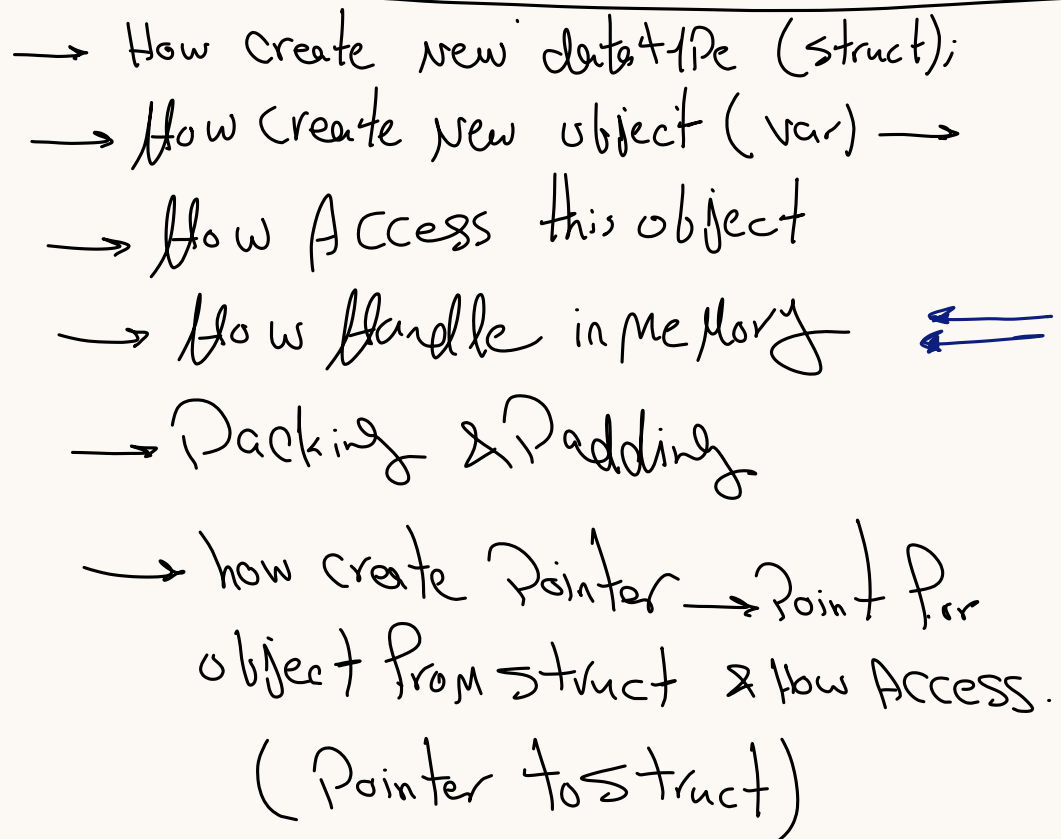 → How create new datatype (struct);
→ How create new object (var) →
→ How Access this object
→ How Handle in memory
→ Packing & Padding
→ how create Pointer → Point For
object From struct & How Access.
(Pointer to struct)